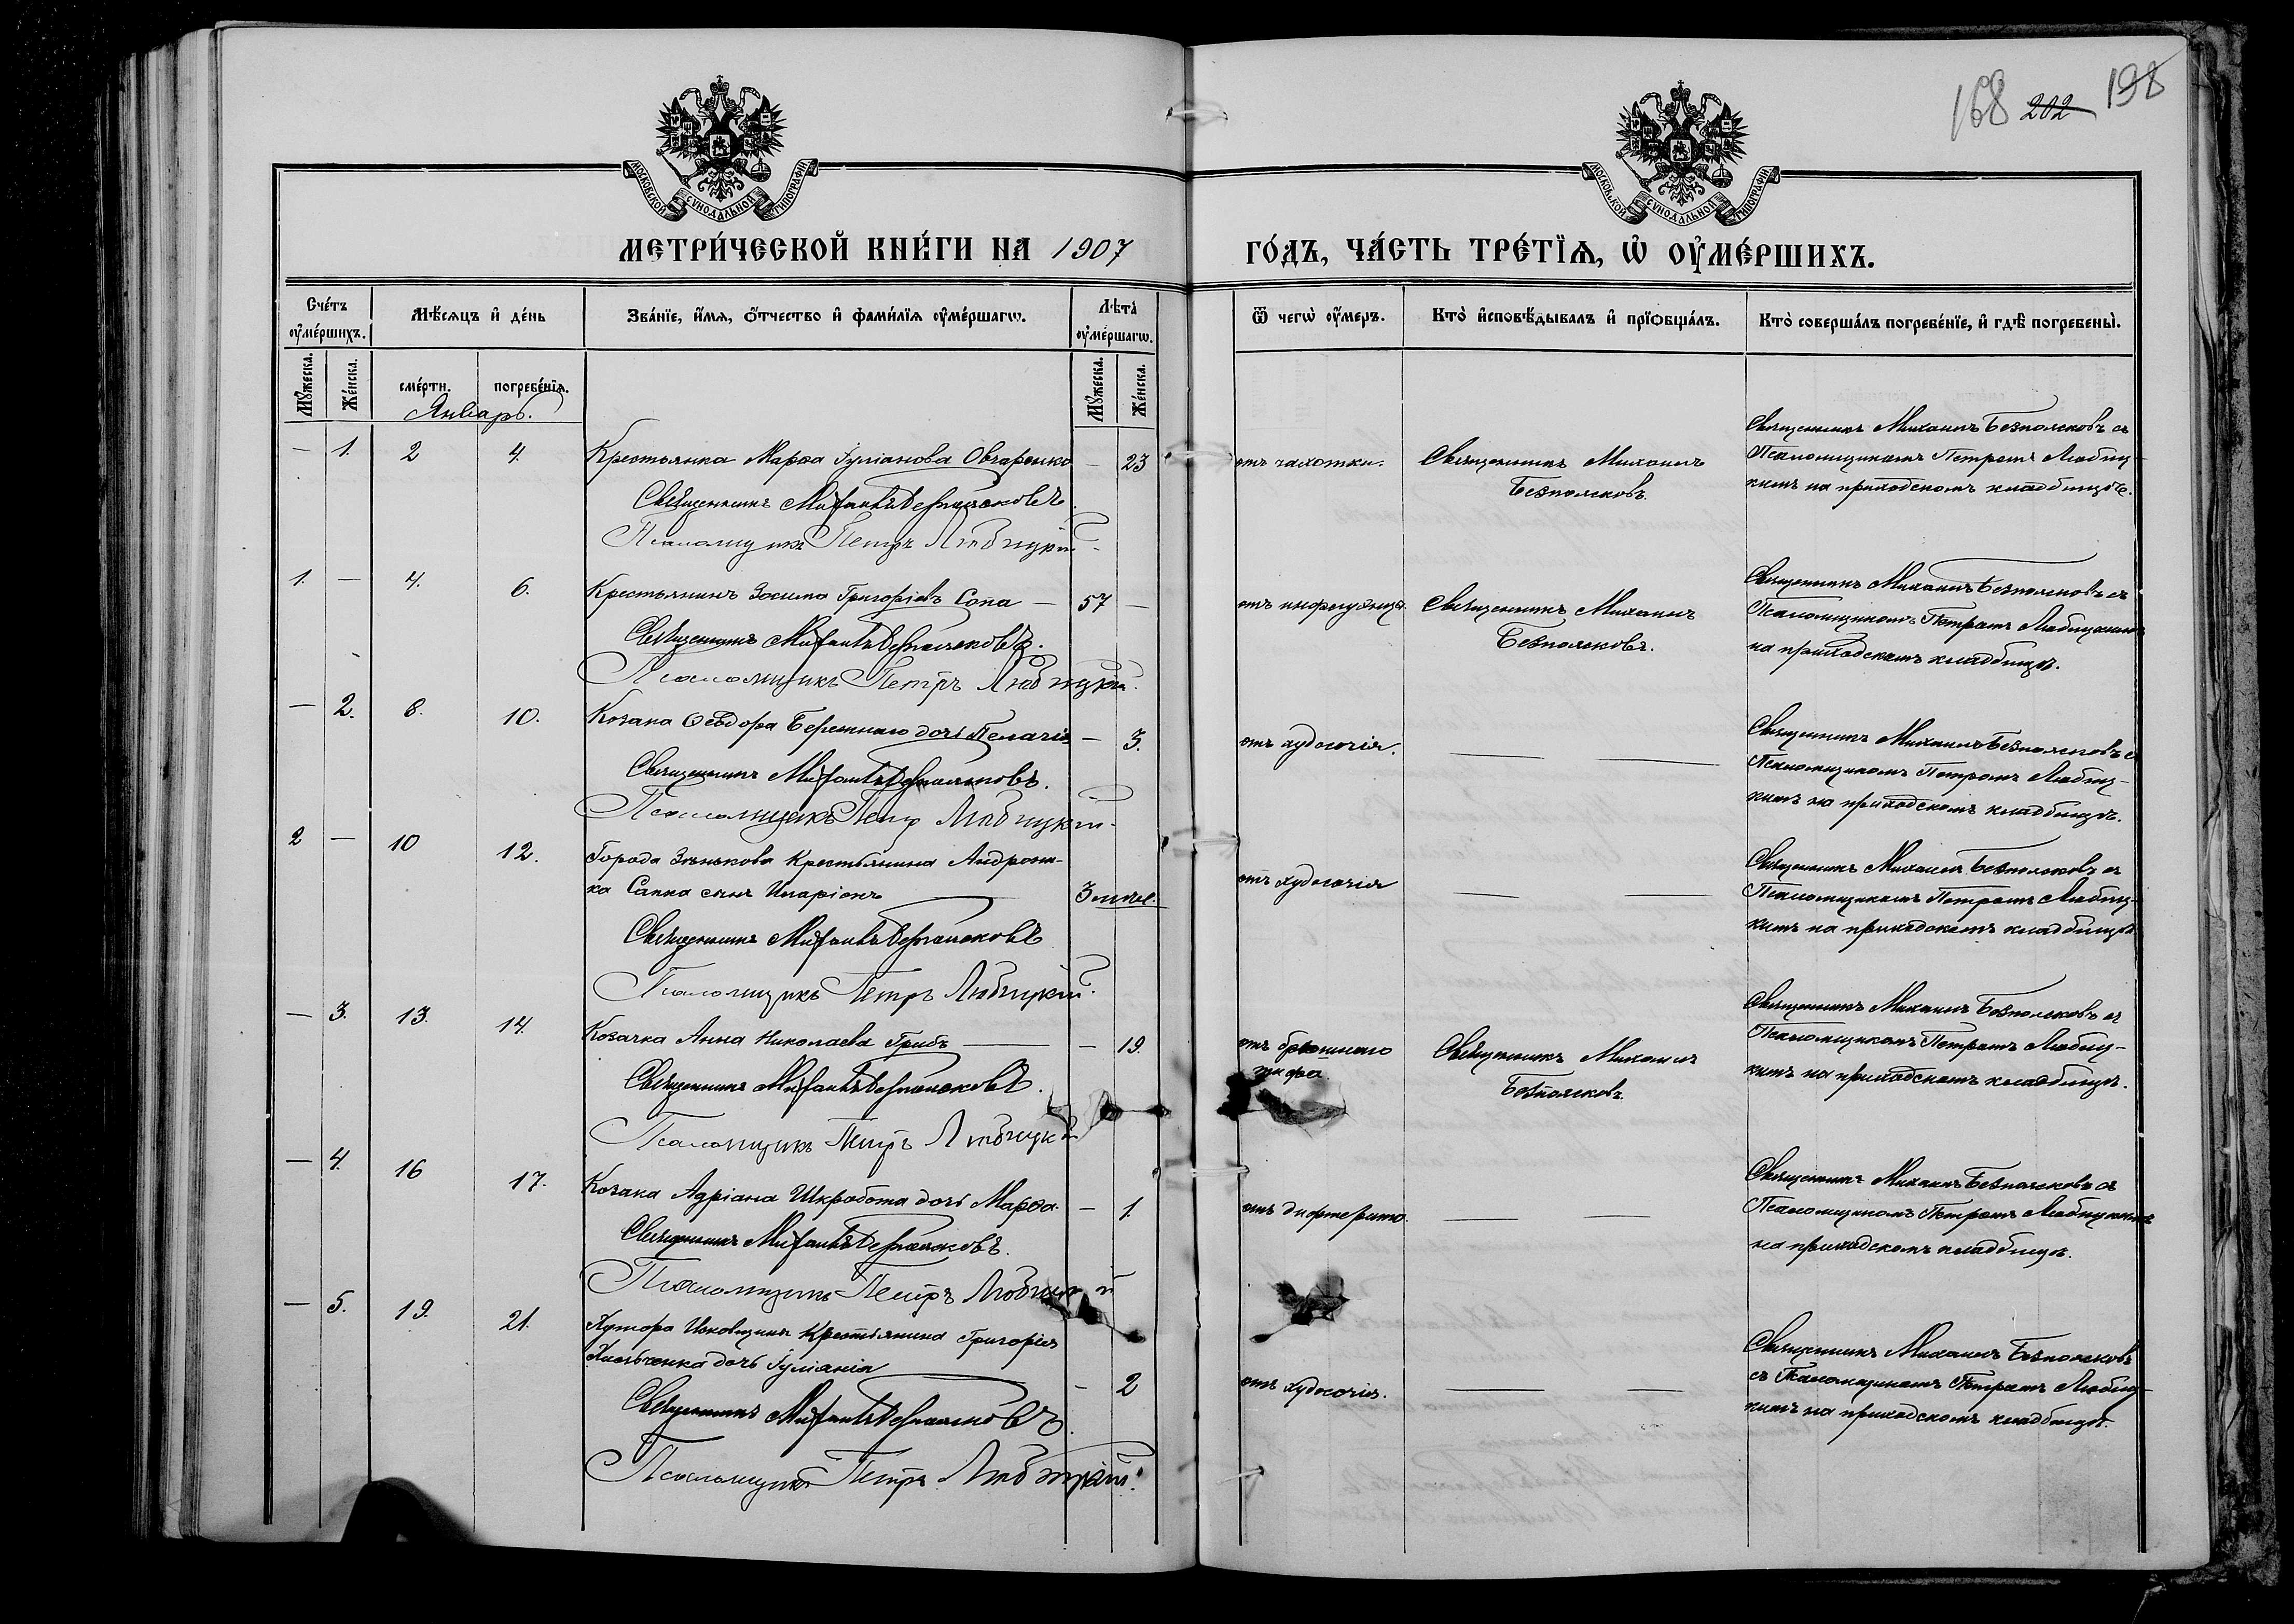 168 202 198
МОСКОВСКОЙ СѴНОДАЛЬНОЙ ТИПОГРАФІИ
МОСКОВСКОЙ СѴНОДАЛЬНОЙ ТИПОГРАФІИ
МЕТРИ́ЧЕСКОЙ КНИ́ГИ НА 1907
ГО́ДЪ, ЧА́СТЬ ТРЕ́ТЇѦ, Ѡ҆ ОУ҆МЕ́РШИХЪ.
Сче́тъ оу҆ме́ршихъ.
Мѣ́сяцъ и҆ де́нь
Зва́нїе, и҆́мѧ, ѻ҆́тчество и҆ фами́лїѧ оу҆ме́ршагѡ.
Лѣта̀ оу҆ме́ршагѡ.
Ѿ чегѡ̀ оу҆́меръ.
Кто̀ и҆сповѣ́дывалъ и҆ прїѡбща́лъ.
Кто̀ соверша́лъ погребе́нїе, и҆ гдѣ̀ погребены̀.
Мꙋ́жеска.
Же́нска.
сме́рти.
погребе́нїѧ.
Мꙋ́жеска.
Же́нска.
Январь.
— 1. 2 4. Крестьянка Марѳа Іуліанова Овчаренко — 23
Священникъ Михаилъ Безпоясковъ
Псаломщикъ Петръ Любицкій
отъ чахотки.
Священникъ Михаилъ
Безпоясковъ.
Священникъ Михаилъ Безпоясковъ съ
Псаломщикомъ Петромъ Любиц-
кимъ на приходскомъ кладбищѣ.
1. — 4. 6. Крестьянинъ Зосима Григоріевъ Сопа — 57 —
Священникъ Михаилъ Безпоясковъ.
Псаломщикъ Петръ Любицкій.
отъ инфлуэнца.
Священникъ Михаилъ
Безпоясковъ.
Священникъ Михаилъ Безпоясковъ съ
Псаломщикомъ Петромъ Любицкимъ
на приходскомъ кладбищѣ.
— 2. 8. 10. Козака Ѳеодора Бережнаго дочь Пелагія — 3.
Священникъ Михаилъ Безпоясковъ.
Псаломщикъ Петръ Любицкій.
отъ худосочія.
— —
Священникъ Михаилъ Безпоясковъ съ
Псаломщикомъ Петромъ Любиц-
кимъ на приходскомъ кладбищѣ.
2 — 10 12. Города Зѣнькова Крестьянина Андрони-
ка Сапка сынъ Иларіонъ 3 мѣс.
Священникъ Михаилъ Безпоясковъ
Псаломщикъ Петръ Любицкій.
отъ худосочія
— —
Священникъ Михаилъ Безпоясковъ съ
Псаломщикомъ Петромъ Любиц-
кимъ на приходскомъ кладбищѣ
— 3. 13. 14. Козачка Анна Николаева Грибъ — — 19.
Священникъ Михаилъ Безпоясковъ.
Псаломщикъ Петръ Любицкій
отъ брюшнаго
тифа.
Священникъ Михаилъ
Безпоясковъ.
Священникъ Михаилъ Безпоясковъ съ
Псаломщикомъ Петромъ Любиц-
кимъ на приходскомъ кладбищѣ.
— 4. 16 17. Козака Адріана Шкробота дочь Марѳа. — 1.
Священникъ Михаилъ Безпоясковъ.
Псаломщикъ Петръ Любицкій
отъ дифтерита.
— —
Священникъ Михаилъ Безпоясковъ съ
Псаломщикомъ Петромъ Любицкимъ
на приходскомъ кладбищѣ.
— 5. 19. 21. Хутора Крестьянина Григорія
дочь Іуліанія — 2
Священникъ Михаилъ Безпоясковъ.
Псаломщикъ Петръ Любицкій.
отъ худосочія.
— —
Священникъ Михаилъ Безпоясковъ
съ Псаломщикомъ Петромъ Любиц-
кимъ на приходскомъ кладбищѣ.